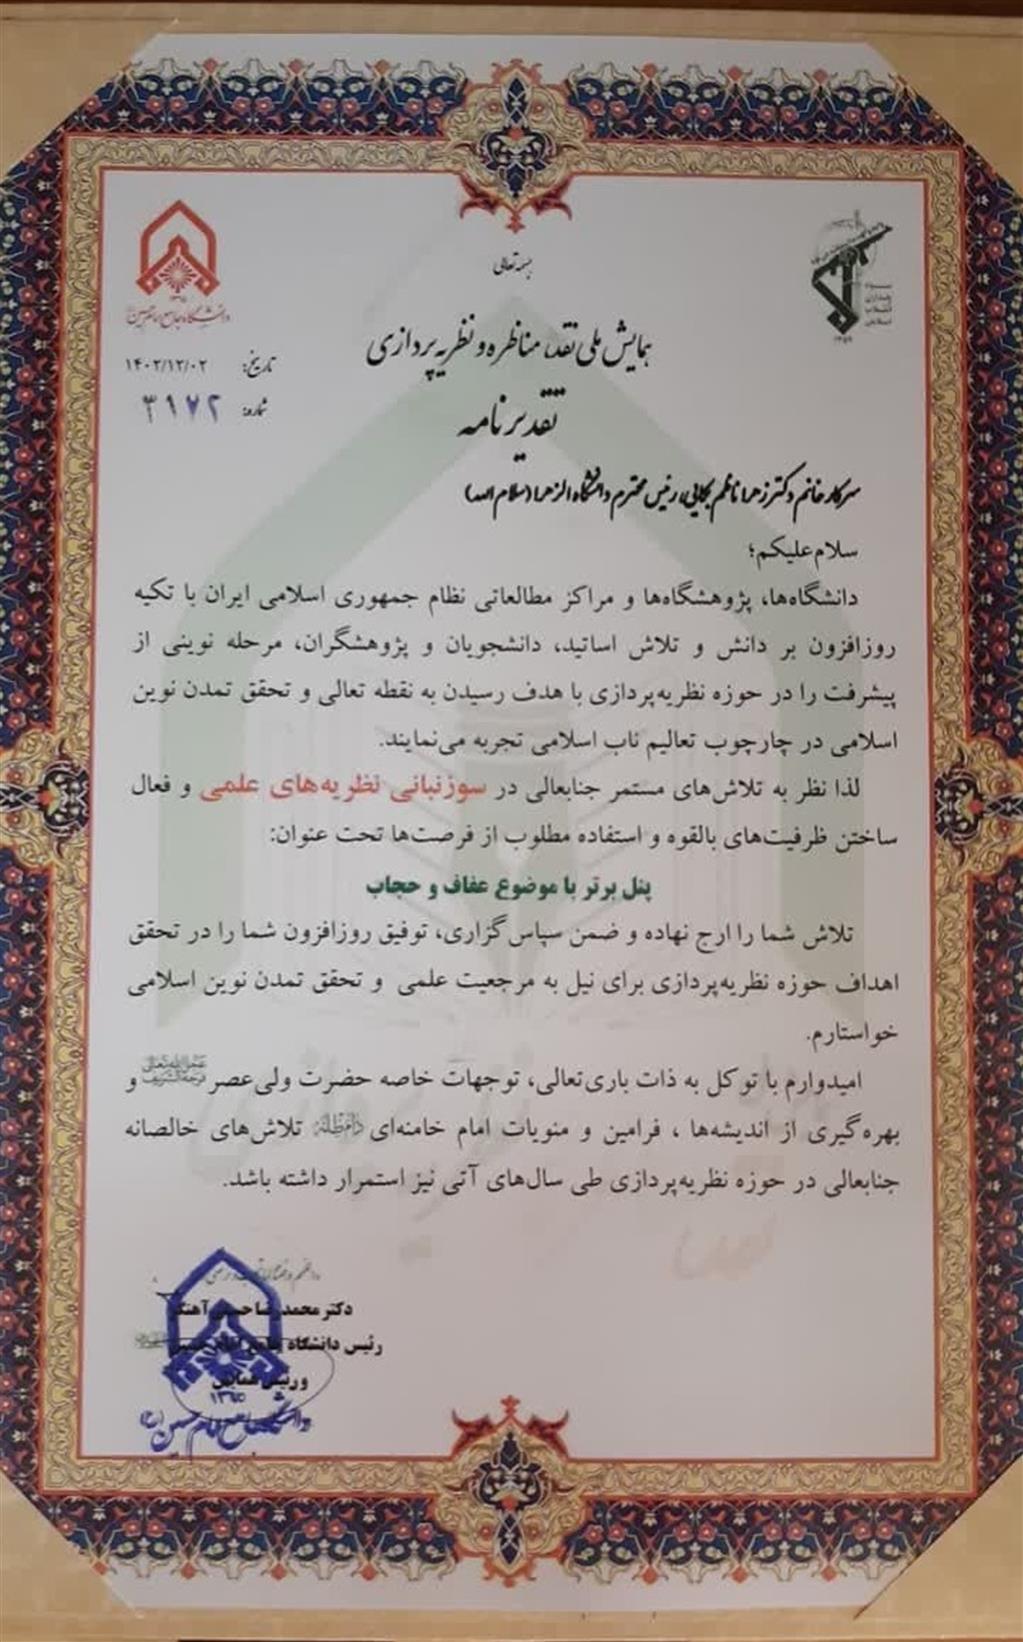 بسمه تعالی
دانشگاه جامع امام حسین
سپاه
پاسداران
انقلاب
اسلامی
همایش ملی نقد، مناظره و نظریه پردازی
تاریخ: ۱۴۰۲/۱۲/۰۲
شماره: ۳۹۷۲
تقدیرنامه
سرکار خانم دکتر زهرا ناظم بکایی، رئیس محترم دانشگاه الزهرا (سلام الله)
سلام علیکم؛
دانشگاه‌ها، پژوهشگاه‌ها و مراکز مطالعاتی نظام جمهوری اسلامی ایران با تکیه
روزافزون بر دانش و تلاش اساتید، دانشجویان و پژوهشگران، مرحله نوینی از
پیشرفت را در حوزه نظریه‌پردازی با هدف رسیدن به نقطه تعالی و تحقق تمدن نوین
اسلامی در چارچوب تعالیم ناب اسلامی تجربه می‌نمایند.
لذا نظر به تلاش‌های مستمر جنابعالی در سوزنبانی نظریه‌های علمی و فعال
ساختن ظرفیت‌های بالقوه و استفاده مطلوب از فرصت‌ها تحت عنوان:
پنل برتر با موضوع عفاف و حجاب
تلاش شما را ارج نهاده و ضمن سپاس‌گزاری، توفیق روزافزون شما را در تحقق
اهداف حوزه نظریه‌پردازی برای نیل به مرجعیت علمی و تحقق تمدن نوین اسلامی
خواستارم.
امیدوارم با توکل به ذات باری‌تعالی، توجهات خاصه حضرت ولی‌عصر عجل الله تعالی فرجه الشریف و
بهره‌گیری از اندیشه‌ها ، فرامین و منویات امام خامنه‌ای دام ظله تلاش‌های خالصانه
جنابعالی در حوزه نظریه‌پردازی طی سال‌های آتی نیز استمرار داشته باشد.
دکتر محمدرضا حسنی آهنگر
رئیس دانشگاه جامع امام حسین
و رئیس همایش
۱۳۶۵
دانشگاه جامع امام حسین (ع)